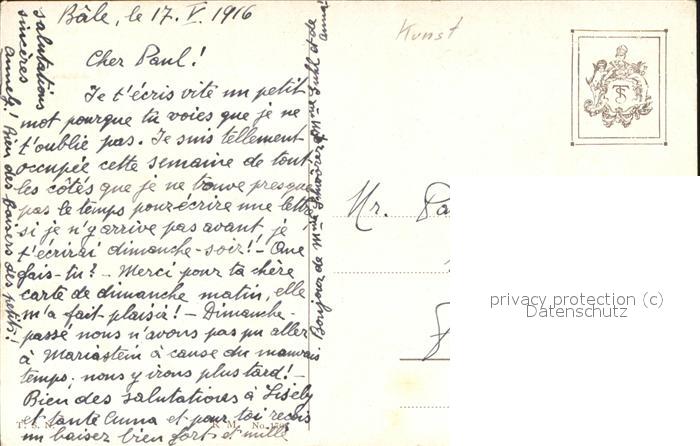 Bâle, le 17. V. 1916
Cher Paul!
Je t'écris vite un petit
mot pourque tu voies que je ne
t'oublie pas. Je suis tellement
occupée cette semaine de tout
les côtés que je ne trouve presque
pas le temps pour écrire une lettre
si je n'y arrive pas avant, je
t'écrirai dimanche-soir! - Que
fais-tu? - Merci pour ta chère
carte de dimanche matin, elle
m'a fait plaisir! - Dimanche-
passé nous n'avons pas pu aller
à Mariastein à cause du mauvais
temps, nous y irons plus tard! -
Bien des salutations à Lisely
et tante Anna et pour toi reçois
un baiser bien fort et mille
salutations
sincères
Annely! Bien des baisers des petits!
Bonjour de Mme et de Mme et de
Anna!
T. S. N. R. M. No.
Kunst
TS
Mr. Pa
privacy protection (c)
Datenschutz